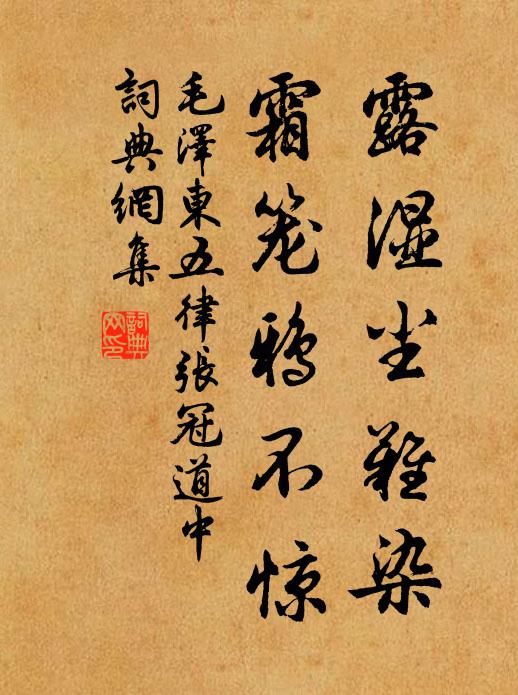 露湿尘難染
霜笼鸦不惊
毛澤東五律張冠道中
詞典網集
詞典
网印